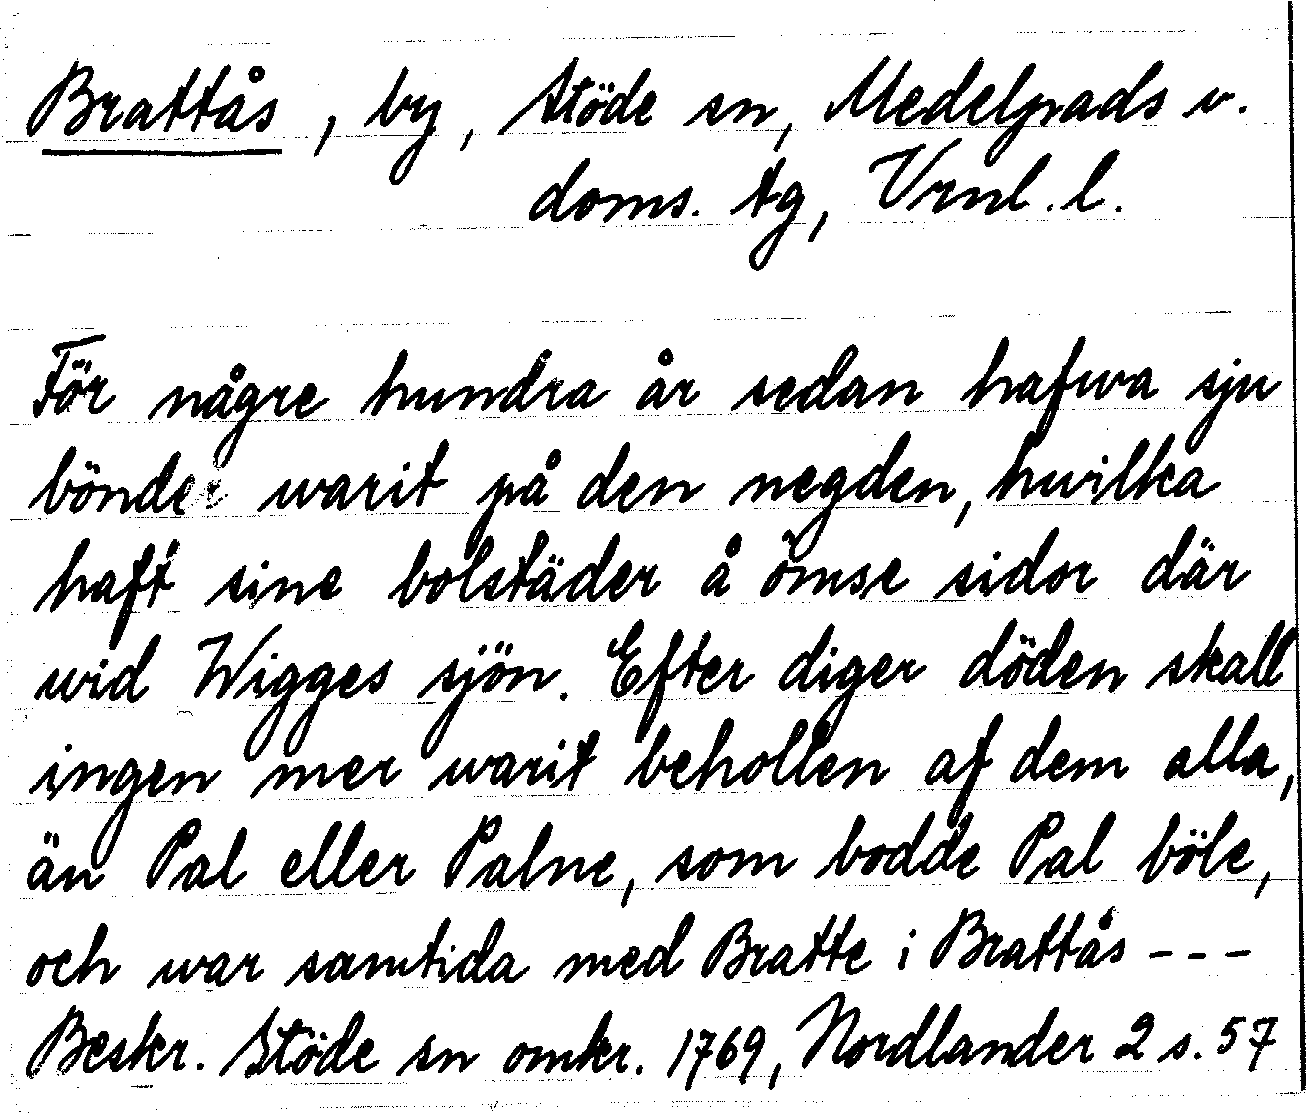 Brattås, by, Stöde sn, Medelpads v.
doms. tg, Vrnl. l.
För någre hundra år sedan hafwa sju
bönder warit på den negden, hwilka
haft sine bolstäder å ömse sidor där
wid Wigges sjön. Efter diger döden skall
ingen mer warit behollen af dem alla,
än Pal eller Palne, som bodde Pal böle,
och war samtida med Bratte i Brattås ---
Beskr. Stöde sn omkr. 1769, Nordlander 2 s. 57